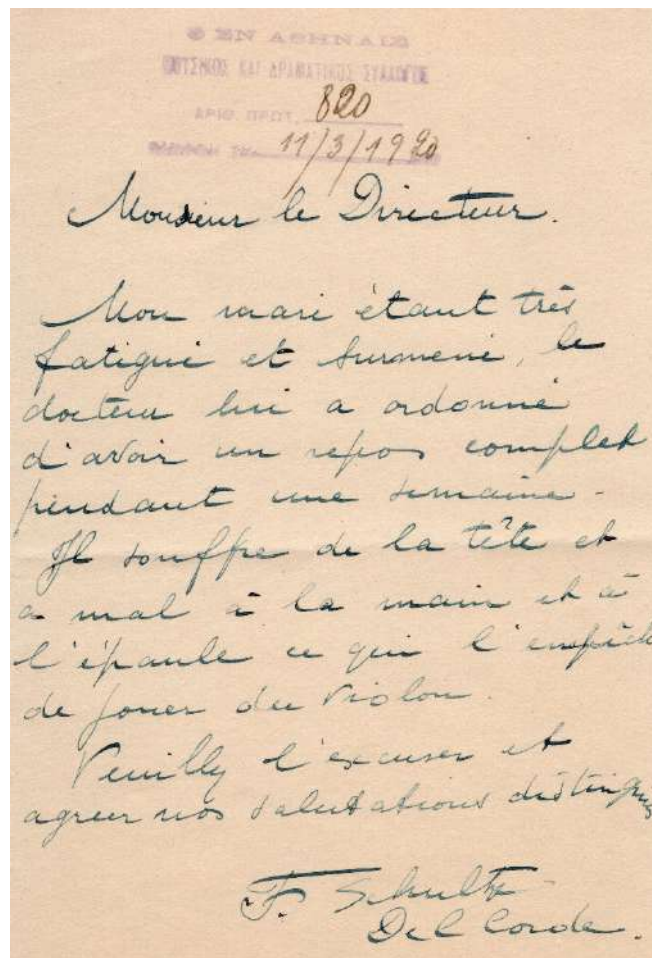 Ο ΕΝ ΑΘΗΝΑΙΣ
ΜΟΥΣΙΚΟΣ ΚΑΙ ΔΡΑΜΑΤΙΚΟΣ ΣΥΛΛΟΓΟΣ
ΑΡΙΘ. ΠΡΩΤ. 820
11/3/1920
Monsieur le Directeur.
Mon mari étant très
fatigué et surmené, le
docteur lui a ordonné
d'avoir un repos complet
pendant une semaine.
Il souffre de la tête et
a mal à la main et à
l'épaule ce qui l'empêch
de jouer du violon.
Veuillez l'excuser et
agréer nos salutations distingu
F. Schultz
Del Conde.